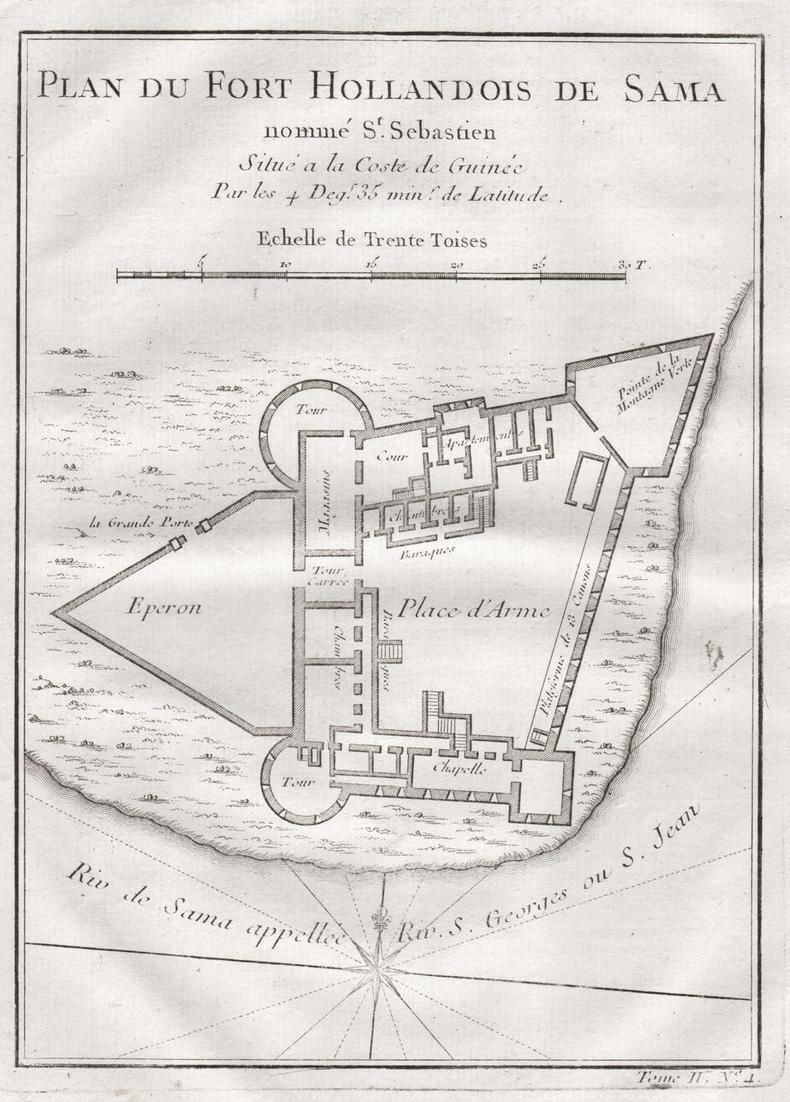 PLAN DU FORT HOLLANDOIS DE SAMA
nommé St. Sebastien
Situé a la Coste de Guinée
Par les 4 Degs. 35 mins. de Latitude .
Echelle de Trente Toises
5 10 15 20 25 30 T.
Pointe de la
Montagne Verte
Tour
Cour
Apartements
Magasins
Chambres
la Grande Porte
Baraques
Tour
Carrée
Eperon
Place d'Arme
Chambres
Baraques
Plateforme de 13 Canons
Chapelle
Tour
Riv de Sama appellée Riv. S. Georges ou S. Jean
Tome IV. No. 4.